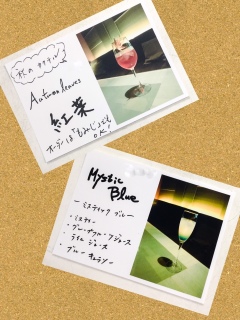 秋のカクテル
Autumn leaves
紅葉
オーダーは「もみじ」でも
OK!
Mystic
Blue
ーミスティック ブルーー
・ミスティー
・グレープフルーツジュース
・ライム ジュース
・ブルー キュラソー